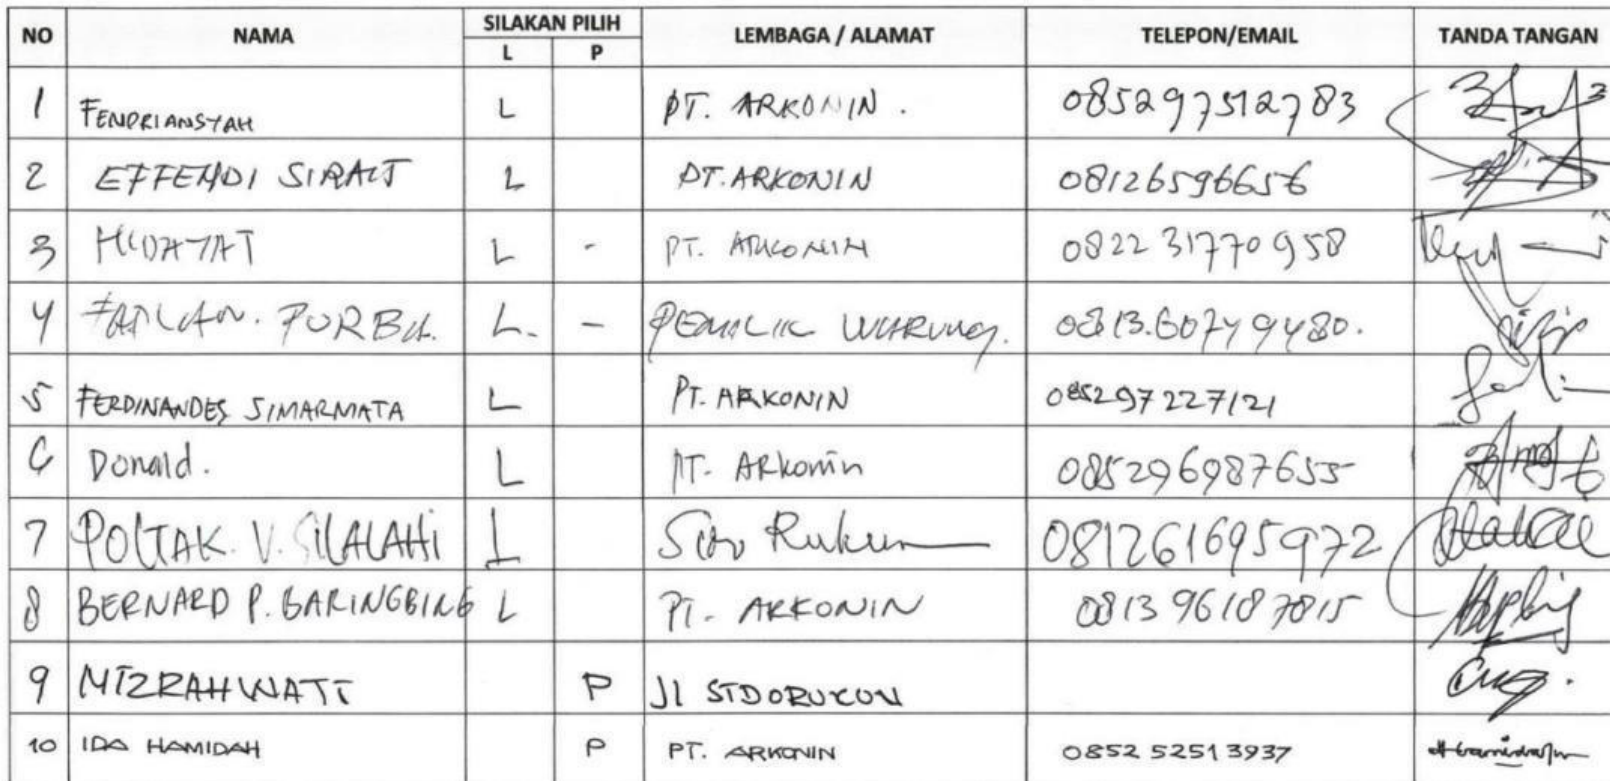 NO NAMA SILAKAN PILIH LEMBAGA / ALAMAT TELEPON/EMAIL TANDA TANGAN
L P
1 FENDRIANSYAH L PT. ARKONIN . 085297512783
2 EFFENDI SIRAIT L PT. ARKONIN 08126596656
3 HIDAYAT L - PT. ARKONIN 0822 31770958
4 FADLAN. PURBA. L. - PEMILIK WARUNG. 0813.60749480.
5 FERDINANDES SIMARMATA L PT. ARKONIN 085297227121
6 Donald. L PT. Arkonin 085296987655
7 POLTAK. V. SILALAHI L Sido Rukun 081261695972
8 BERNARD P. GARINGBING L PT. ARKONIN 0813 96187815
9 MIZRAHWATI P Jl SIDORUKUN
10 IDA HAMIDAH P PT. ARKONIN 0852 52513937